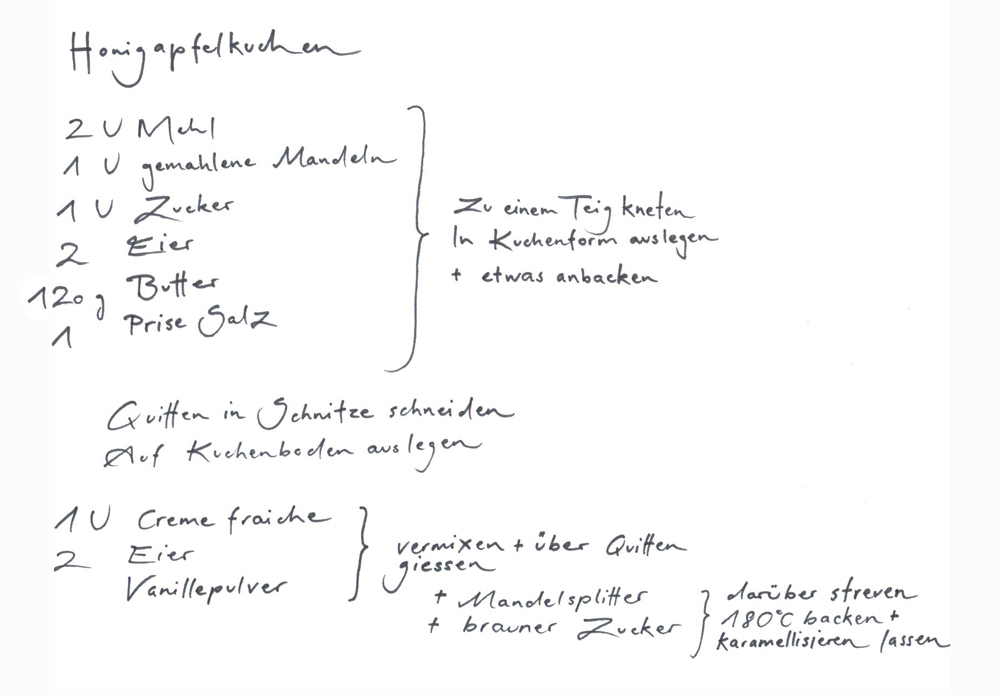 Honigapfelkuchen
2 U Mehl
1 U gemahlene Mandeln
1 U Zucker
2 Eier
120 g Butter
1 Prise Salz
Zu einem Teig kneten
In Kuchenform auslegen
+ etwas anbacken
Quitten in Schnitze schneiden
Auf Kuchenboden auslegen
1 U Creme fraiche
2 Eier
Vanillepulver
vermixen + über Quitten
giessen
+ Mandelsplitter
+ brauner Zucker
darüber streuen
180°C backen +
karamellisieren lassen